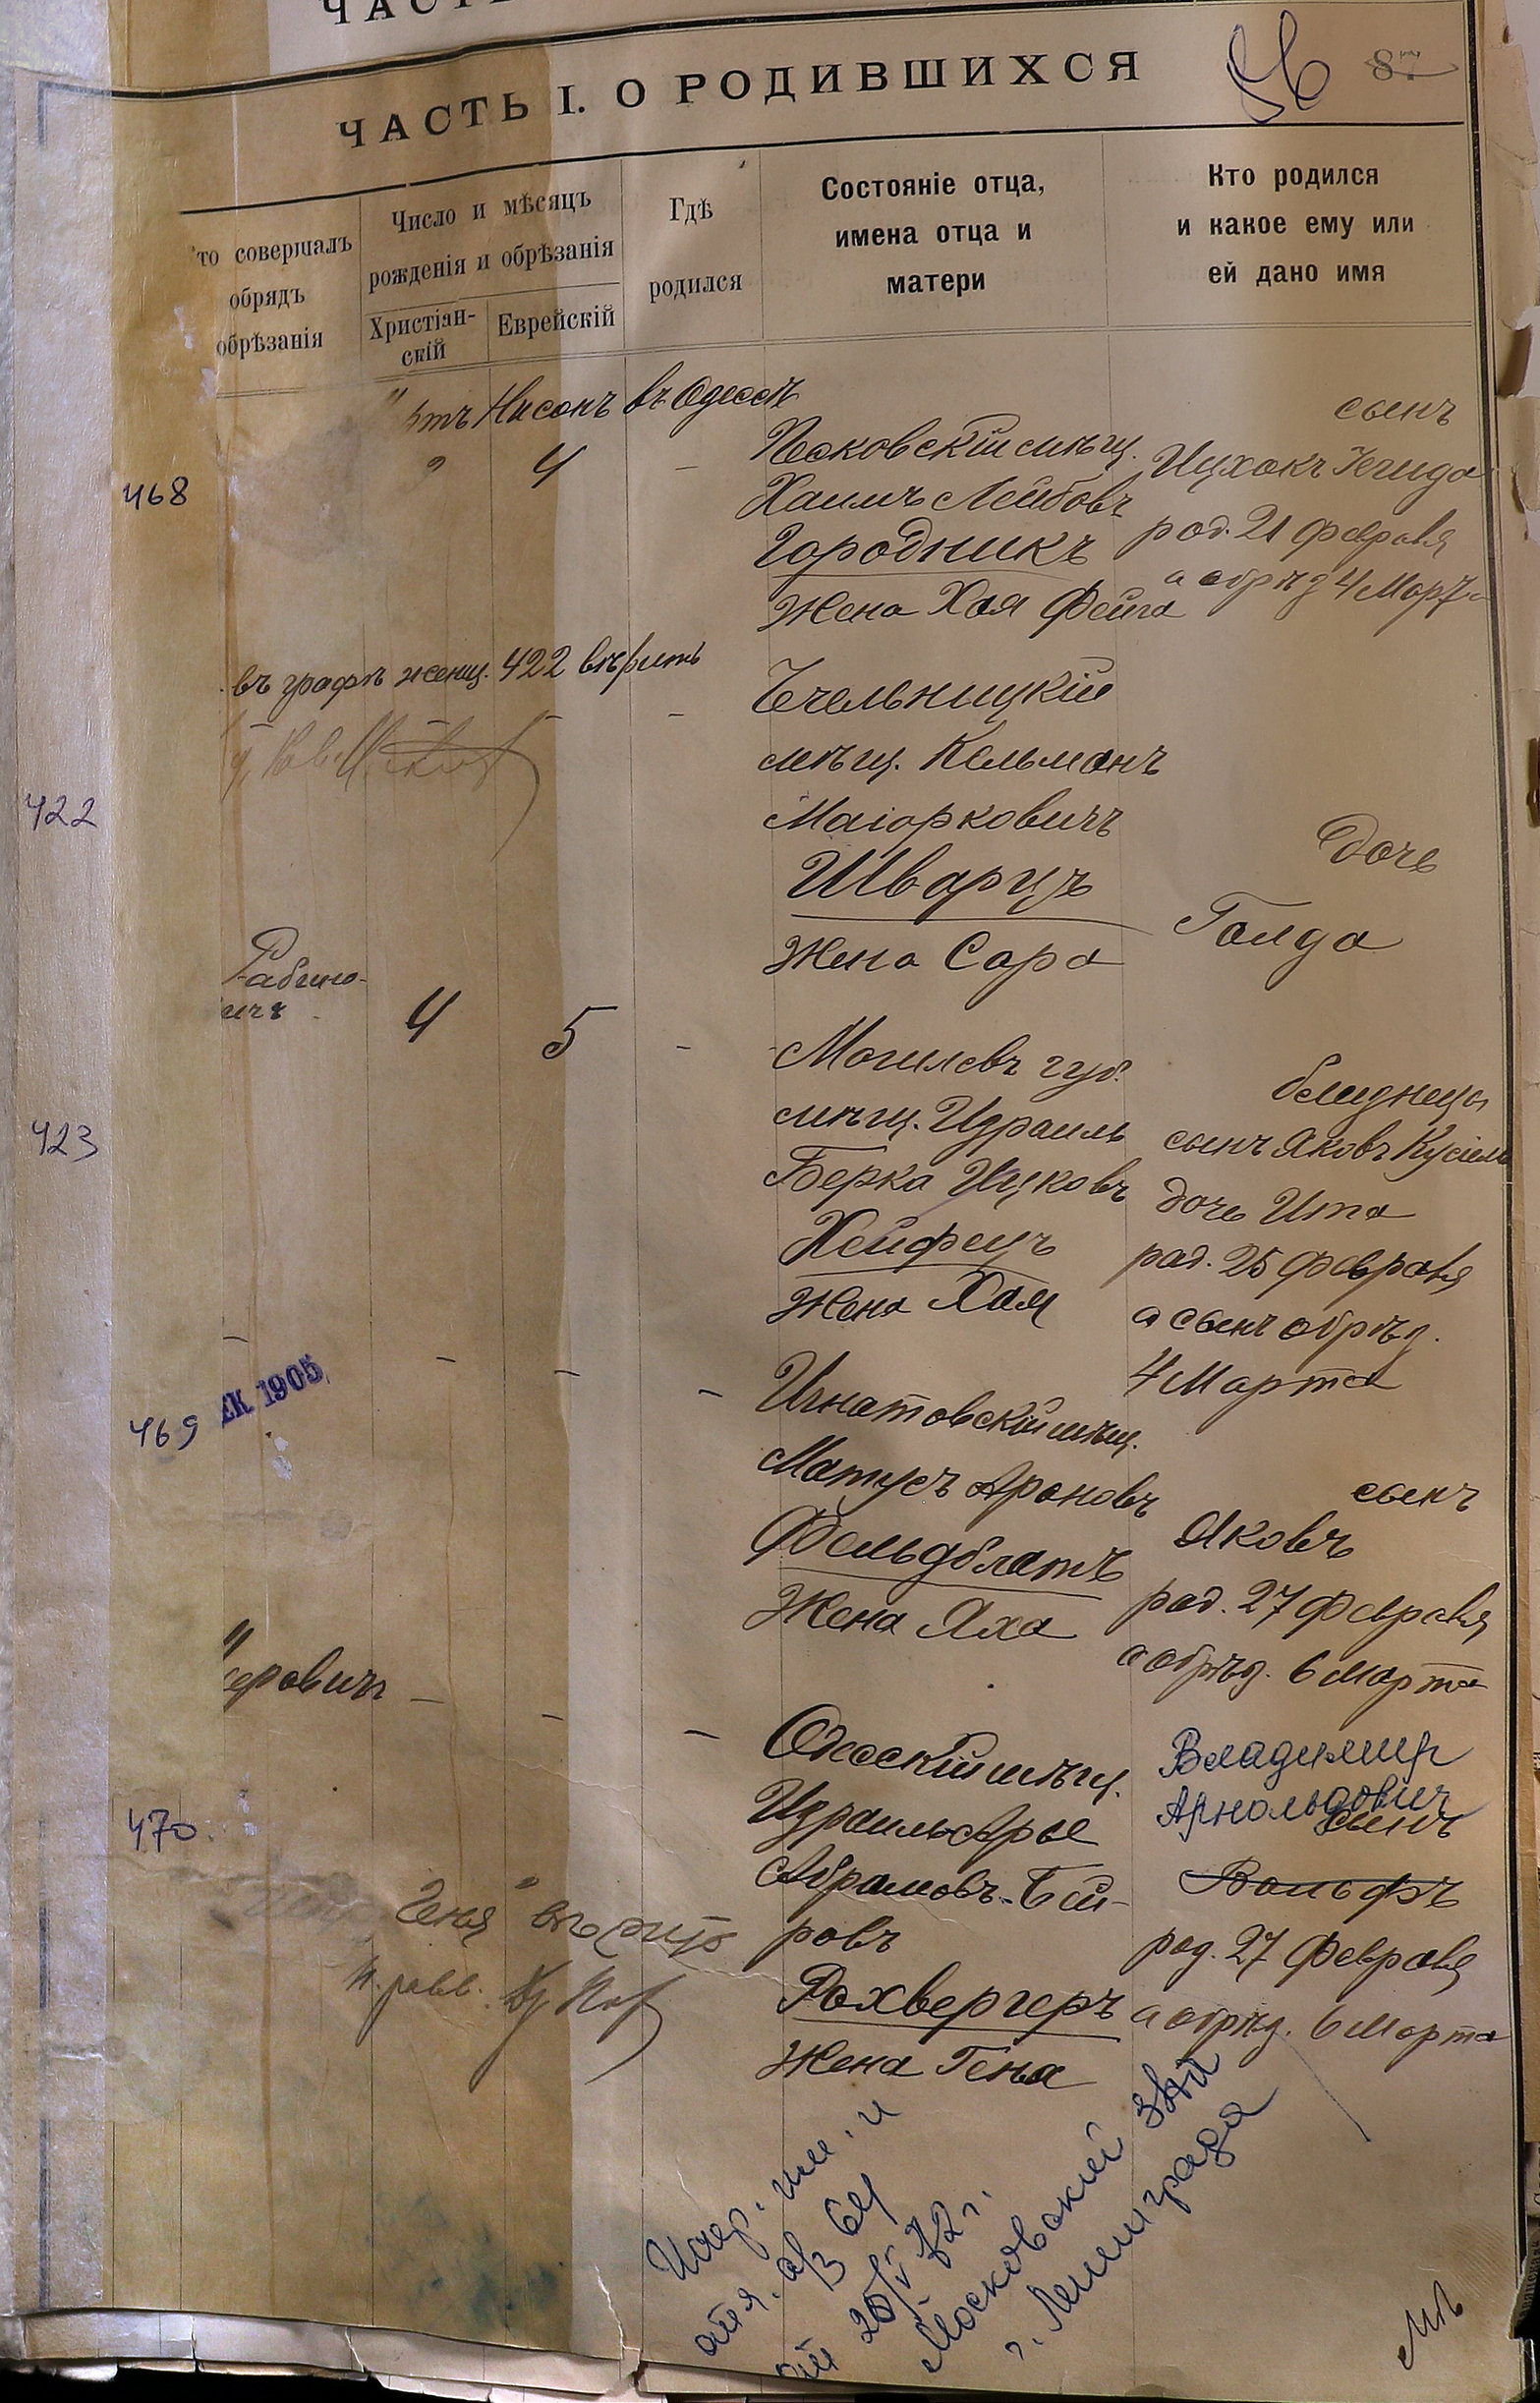 ЧАСТЬ
ЧАСТЬ I. О РОДИВШИХСЯ
56 87
то совершалъ
обрядъ
обрѣзанія
Число и мѣсяцъ
рожденія и обрѣзанія
Христіан-
скій
Еврейскій
Гдѣ
родился
Состояніе отца,
имена отца и
матери
Кто родился
и какое ему или
ей дано имя
ртъ Нисонъ въ Одессѣ
4
468
мѣщ.
Хаимъ Лейбовъ
Городникъ
жена Хая Фейга
сынъ
Ицхокъ
род. 21 февраля
а обрѣз 4 Март
въ графѣ женщ. 422 вѣрить
422
Бчельницкій
мѣщ. Кельманъ
Маіорковичъ
Шварцъ
жена Сара
дочь
Голда
Рабино-
ичъ
4
5
423
Могилевъ губ.
мѣщ. Израиль
Берка Ицковъ
Хейфецъ
жена Хая
близнецы
сынъ Яковъ Кусіель
дочь Ита
род. 25 февраля
а сынъ обрѣз.
4 Марта
ЕК 1905
469
Игнатовскій мѣщ.
Матусъ Ароновъ
Фельдблатъ
жена Яха
сынъ
Яковъ
род. 27 февраля
а обрѣз. 6 Марта
еровичъ
470
Одесскій мѣщ.
Израиль Арье
Абрамовъ-Бей-
ровъ
Рохвергеръ
жена Геня
Владимир
Арнольдович
сынъ
Вольфъ
род. 27 февраля
а обрѣз. 6 Марта
"Геня" вѣрить
и. равв.
Испр. им. и
отч. а/з 64
от 20/V 72 г.
Московский ЗАГС
г. Ленинграда